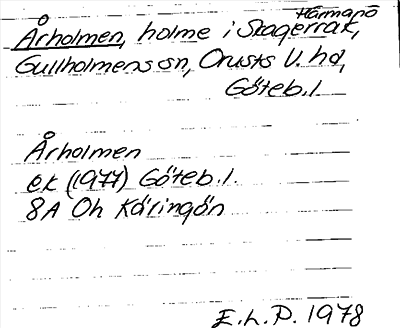 Härmanö
Årholmen, holme i Skagerrak,
Gullholmens sn, Orusts V. hd,
Göteb. l.
Årholmen
ek (1977) Göteb. l.
8A Oh Käringön
E.h.P. 1978